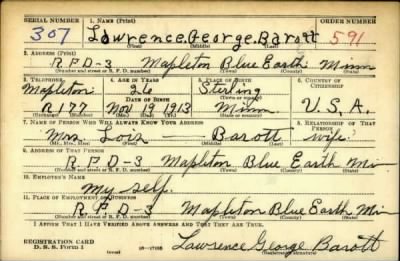 SERIAL NUMBER 1. NAME (Print) ORDER NUMBER
307 Lawrence. George. Barott 591
(First) (Middle) (Last)
2. ADDRESS (Print)
R.P.D-3 Mapleton Blue Earth Minn
(Number and street or R. F. D. number) (Town) (County) (State)
3. TELEPHONE 4. AGE IN YEARS 5. PLACE OF BIRTH 6. COUNTRY OF CITIZENSHIP
Mapleton 26 Sterling
DATE OF BIRTH (Town or county)
R177 Nov 19 1913 Minn U.S.A.
(Exchange) (Number) (Mo.) (Day) (Yr.) (State or country)
7. NAME OF PERSON WHO WILL ALWAYS KNOW YOUR ADDRESS 8. RELATIONSHIP OF THAT PERSON
Mrs Lois Barott wife
(Mr., Mrs., Miss) (First) (Middle) (Last)
9. ADDRESS OF THAT PERSON
R.P.D-3 Mapleton Blue Earth Min
(Number and street or R. F. D. number) (Town) (County) (State)
10. EMPLOYER'S NAME
My self.
11. PLACE OF EMPLOYMENT OR BUSINESS
R.P.D-3 Mapleton Blue Earth Min
(Number and street or R. F. D. number) (Town) (County) (State)
I AFFIRM THAT I HAVE VERIFIED ABOVE ANSWERS AND THAT THEY ARE TRUE.
REGISTRATION CARD
D. S. S. Form 1 Lawrence George Barott
(Registrant's signature)